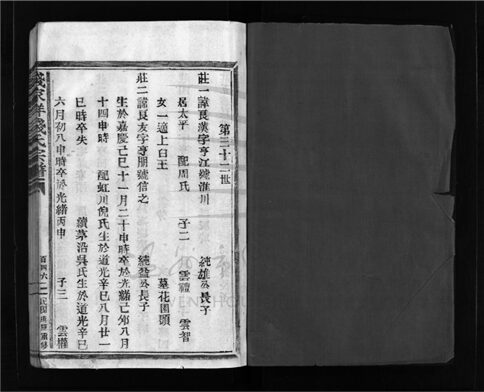 第三十二世
莊一諱良漢字亨江號淮川 純雄公長子
居太平 配周氏 子二 雲禮 雲智
女一適上白王
莊二諱良友字亨朋號信之 純益公長子 墓花園頭
生於嘉慶己巳十一月二十申時卒於光緒己卯八月
十四申時 配虹川倪氏生於道光辛巳八月廿一
巳時卒失 續茅沿吳氏生於道光辛巳
六月初八申時卒於光緒丙申 子三 雲權
錢氏宗譜
百四六
民國
重修